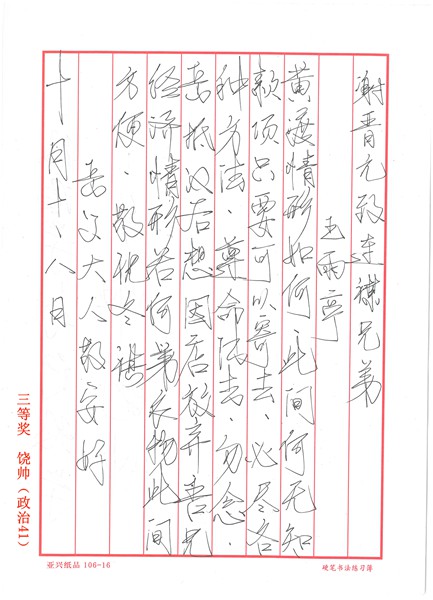 谢晋元致连谋兄弟
玉雨亭
黄渡情形如何、此间何无知
款项只要可以寄去、必尽各
种方法、尊命汇去、勿念、
岳抵汉后想因店放弃吾兄
经济情形若何弟衣物此间
方便、敬祝冬祺
岳父大人敬安好
十月十八日
三等奖 饶帅（政治41）
亚兴纸品 106-16
硬笔书法练习簿